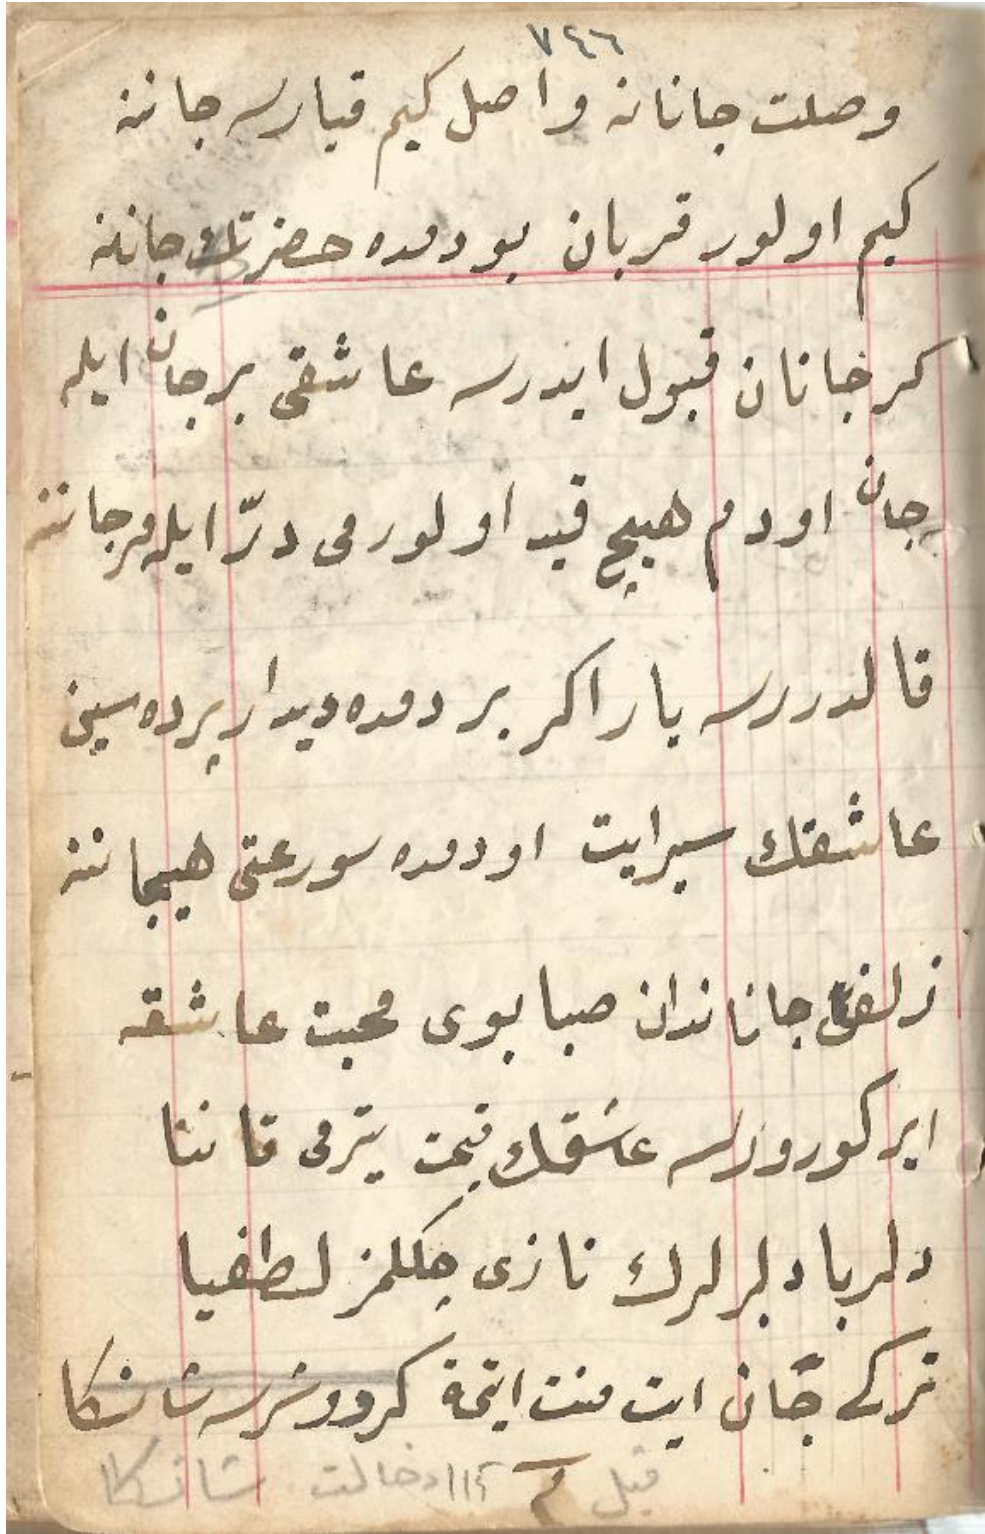 ٧٤٦
وصلت جانانه واصل كيم قيارسه جاننه
كيم اولور قربان بودمده حضرت جاننه
كر جانان قبول ايدرسه عاشقى برجان ايله
جان اودم هيچ قيد اولورمى درّ ايله مرجاننه
قالدررسه يار اكر بر دمده ديدار پرده سين
عاشقك سيرايت اودمده سورعتى هيجاننه
زلف جاناندان صبا بوى محبت عاشقه
اير كورورسه عاشقك قيمت يترمى قاننا
دلربا دلبرلرك نازى چكلمز لطفيا
تركے جان ايت منت ايتمه كر دوشرسه شانكا
قبل م ١١٢ دخالت شانكا